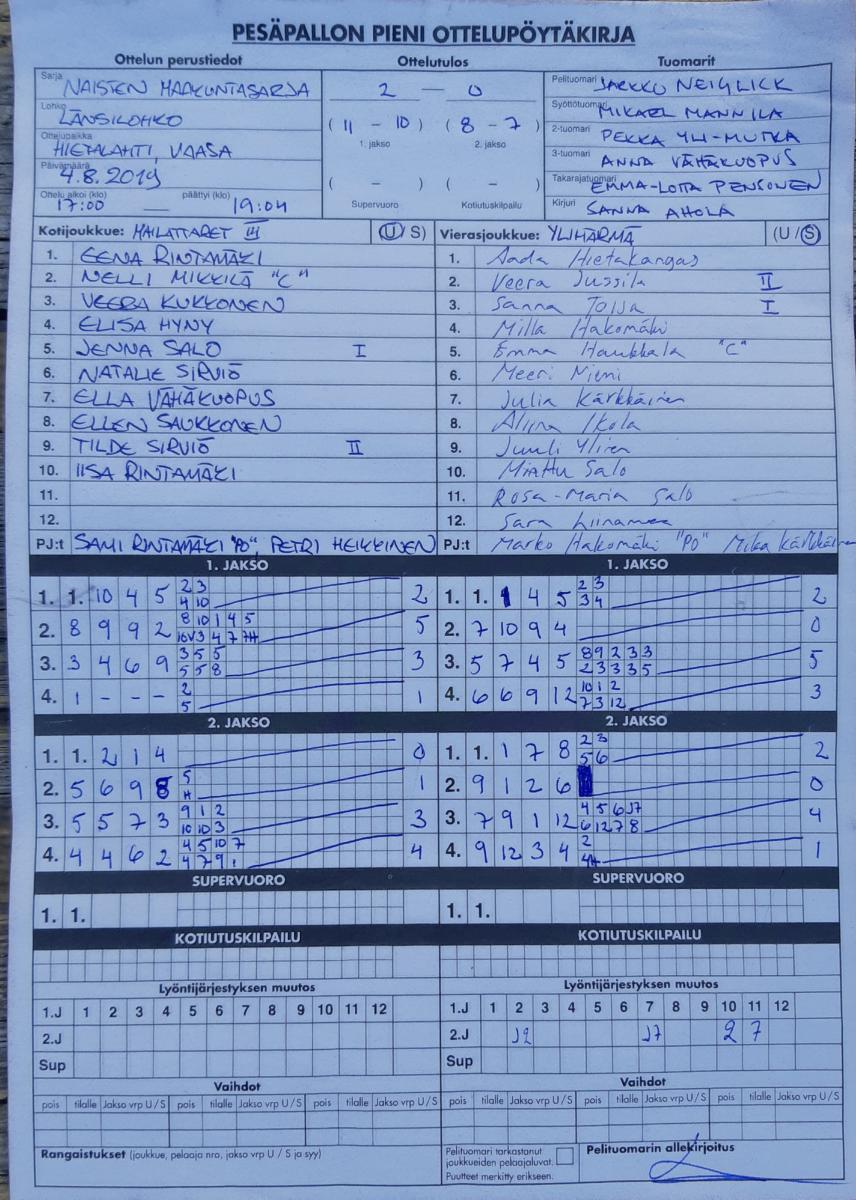 PESÄPALLON PIENI OTTELUPÖYTÄKIRJA
Ottelun perustiedot Ottelutulos Tuomarit
Sarja NAISTEN MAAKUNTASARJA
Lohko LÄNSILOHKO
Ottelupaikka HIETALAHTI, VAASA
Päivämäärä 4.8.2019
Ottelu alkoi (klo) 17:00 — päättyi (klo) 19:04
2 — 0
(11 - 10) (8 - 7)
1. jakso 2. jakso
( - ) ( - )
Supervuoro Kotiutuskilpailu
Pelituomari JARKKO NEIGLICK
Syöttötuomari MIKAEL MANNILA
2-tuomari PEKKA YLI-MUTKA
3-tuomari ANNA VÄHÄKUOPUS
Takarajatuomari EMMA-LOTTA PENSONEN
Kirjuri SANNA AHOLA
Kotijoukkue: MAILATTARET III (U/S)
1. EENA RINTAMÄKI
2. NELLI MIKKILÄ "C"
3. VEERA KUKKONEN
4. ELISA HYNY
5. JENNA SALO I
6. NATALIE SIRVIÖ
7. ELLA VÄHÄKUOPUS
8. ELLEN SAUKKONEN
9. TILDE SIRVIÖ II
10. IISA RINTAMÄKI
11.
12.
PJ:t SAMI RINTAMÄKI "PO", PETRI HEIKKINEN
Vierasjoukkue: YLIHÄRMÄ (U/S)
1. Aada Hietakangas
2. Veera Jussila II
3. Sanna Toija I
4. Milla Hakomäki
5. Emma Haukkala "C"
6. Meeri Niemi
7. Julia Kärkkäinen
8. Aliina Ikola
9. Juuli Ylinen
10. Miattu Salo
11. Rosa-Maria Salo
12. Sara Liinamaa
PJ:t Marko Hakomäki "PO" Mika Kärkkäinen
1. JAKSO
1. 1. 10 4 5 2 3 2
4 10
2. 8 9 9 2 8 10 1 4 5 5
10V 3 4 7 7H
3. 3 4 6 9 3 5 5 3
5 5 8
4. 1 - - - 2 1
5
1. JAKSO
1. 1. 1 4 5 2 3 2
3 4
2. 7 10 9 4 0
3. 5 7 4 5 8 9 2 3 3 5
2 3 3 3 5
4. 6 6 9 12 10 1 2 3
7 3 12
2. JAKSO
1. 1. 2 1 4 0
2. 5 6 9 8 5 1
H
3. 5 5 7 3 9 1 2 3
10 10 3
4. 4 4 6 2 4 5 10 7 4
4 7 9 1
2. JAKSO
1. 1. 1 7 8 2 3 2
5 6
2. 9 1 2 6 0
3. 7 9 1 12 4 5 6 J7 4
6 12 7 8
4. 9 12 3 4 2 1
4H
SUPERVUORO
1. 1.
SUPERVUORO
1. 1.
KOTIUTUSKILPAILU
KOTIUTUSKILPAILU
Lyöntijärjestyksen muutos
1.J 1 2 3 4 5 6 7 8 9 10 11 12
2.J
Sup
Lyöntijärjestyksen muutos
1.J 1 2 3 4 5 6 7 8 9 10 11 12
2.J J2 J7 2 7
Sup
Vaihdot
pois tilalle Jakso vrp U/S pois tilalle Jakso vrp U/S pois tilalle Jakso vrp U/S
Vaihdot
pois tilalle Jakso vrp U/S pois tilalle Jakso vrp U/S pois tilalle Jakso vrp U/S
Rangaistukset (joukkue, pelaaja nro, jakso vrp U / S ja syy)
Pelituomari tarkastanut
joukkueiden pelaajaluvat.
Puutteet merkitty erikseen.
Pelituomarin allekirjoitus